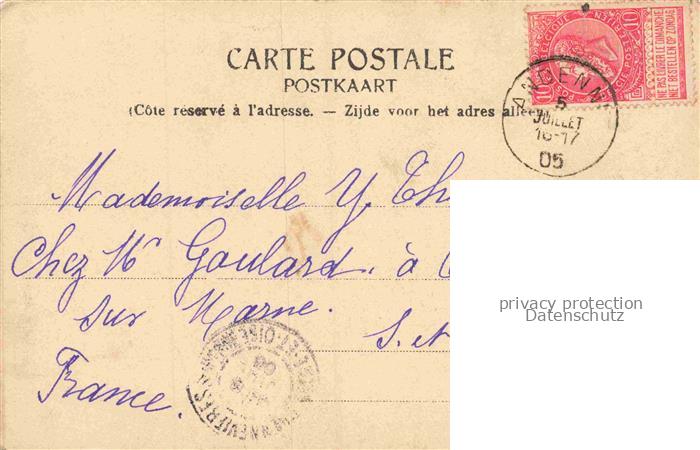 CARTE POSTALE
POSTKAART
(Côte réservé à l'adresse. — Zijde voor het adres
10 BELGIQUE 10
NE PAS LIVRER LE DIMANCHE
NIET BESTELLEN OP ZONDAG
ANDENN
5
JUILLET
16-17
05
Mademoiselle Y. Th
Chez Mr Goulard. à
sur Marne.
S. et
France.
ET-OISE
privacy protection
Datenschutz